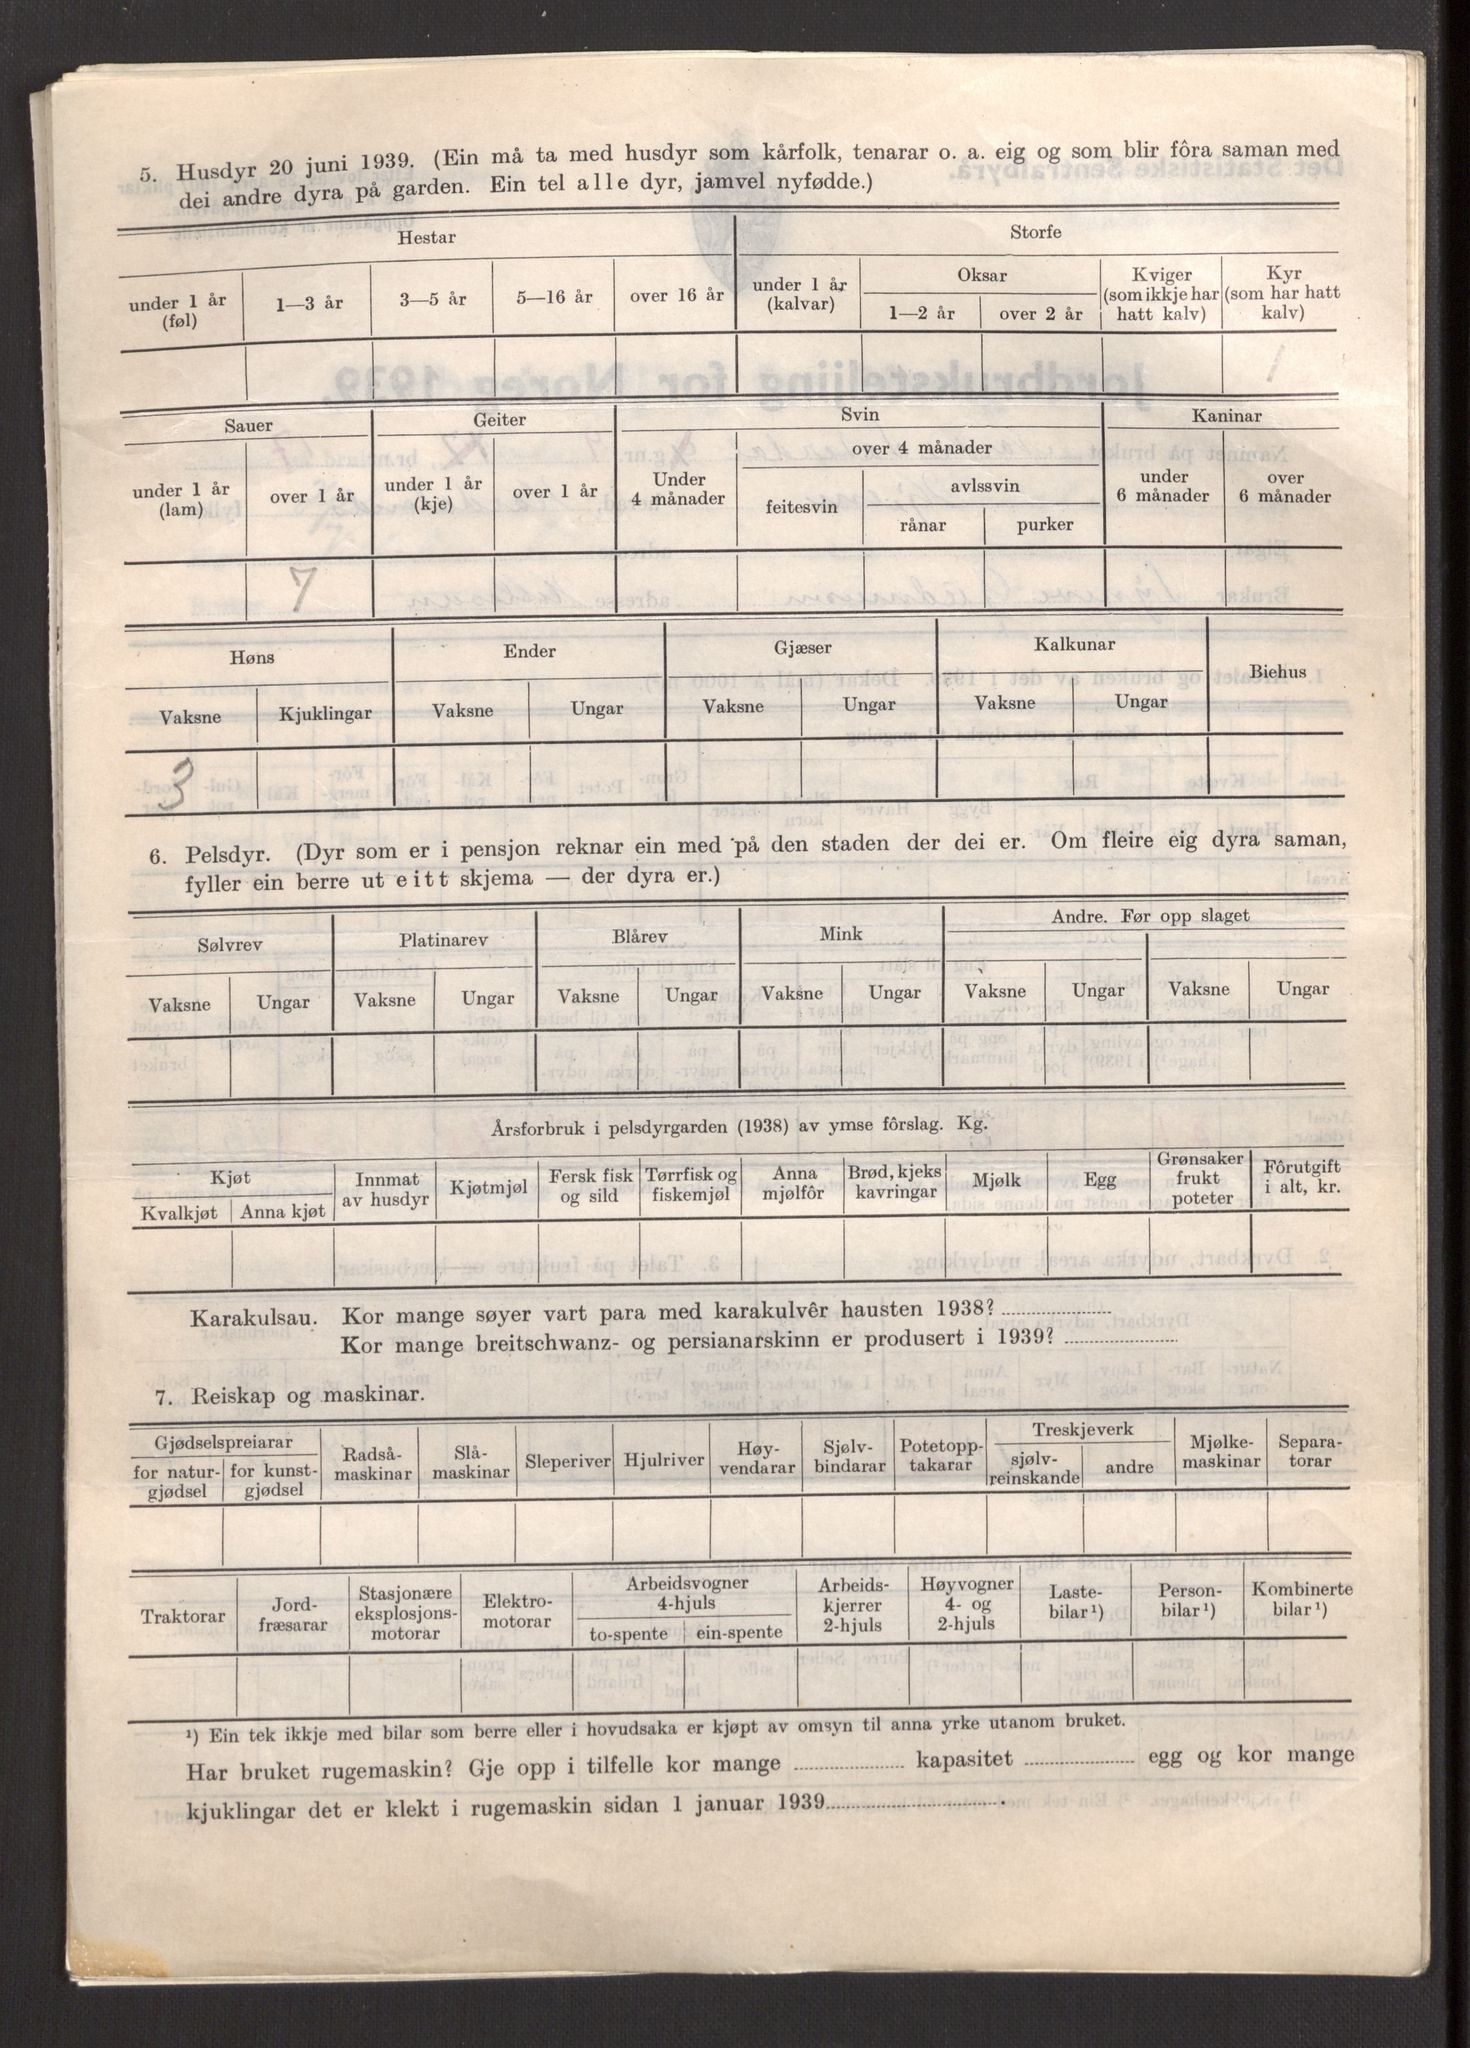 5. Husdyr 20 juni 1939. (Ein må ta med husdyr som kårfolk, tenarar o. a. eig og som blir fôra saman med
dei andre dyra på garden. Ein tel alle dyr, jamvel nyfødde.)
Hestar Storfe
under 1 år (føl) 1—3 år 3—5 år 5—16 år over 16 år under 1 år (kalvar) Oksar 1—2 år over 2 år Kviger (som ikkje har hatt kalv) Kyr (som har hatt kalv)
1
Sauer Geiter Svin Kaninar
under 1 år (lam) over 1 år under 1 år (kje) over 1 år Under 4 månader over 4 månader feitesvin avlssvin rånar purker under 6 månader over 6 månader
7
Høns Ender Gjæser Kalkunar Biehus
Vaksne Kjuklingar Vaksne Ungar Vaksne Ungar Vaksne Ungar
3
6. Pelsdyr. (Dyr som er i pensjon reknar ein med på den staden der dei er. Om fleire eig dyra saman,
fyller ein berre ut eitt skjema — der dyra er.)
Sølvrev Platinarev Blårev Mink Andre. Før opp slaget
Vaksne Ungar Vaksne Ungar Vaksne Ungar Vaksne Ungar Vaksne Ungar Vaksne Ungar
Årsforbruk i pelsdyrgarden (1938) av ymse fôrslag. Kg.
Kjøt Kvalkjøt Anna kjøt Innmat av husdyr Kjøtmjøl Fersk fisk og sild Tørrfisk og fiskemjøl Anna mjølfôr Brød, kjeks kavringar Mjølk Egg Grønsaker frukt poteter Fôrutgift i alt, kr.
Karakulsau. Kor mange søyer vart para med karakulvêr hausten 1938?
Kor mange breitschwanz- og persianarskinn er produsert i 1939?
7. Reiskap og maskinar.
Gjødselspreiarar for natur-gjødsel for kunst-gjødsel Radså-maskinar Slå-maskinar Sleperiver Hjulriver Høy-vendarar Sjølv-bindarar Potetopp-takarar Treskjeverk sjølv-reinskande andre Mjølke-maskinar Separa-torar
Traktorar Jord-fræsarar Stasjonære eksplosjons-motorar Elektro-motorar Arbeidsvogner 4-hjuls to-spente ein-spente Arbeids-kjerrer 2-hjuls Høyvogner 4- og 2-hjuls Laste-bilar¹) Person-bilar¹) Kombinerte bilar¹)
¹) Ein tek ikkje med bilar som berre eller i hovudsaka er kjøpt av omsyn til anna yrke utanom bruket.
Har bruket rugemaskin? Gje opp i tilfelle kor mange kapasitet egg og kor mange
kjuklingar det er klekt i rugemaskin sidan 1 januar 1939